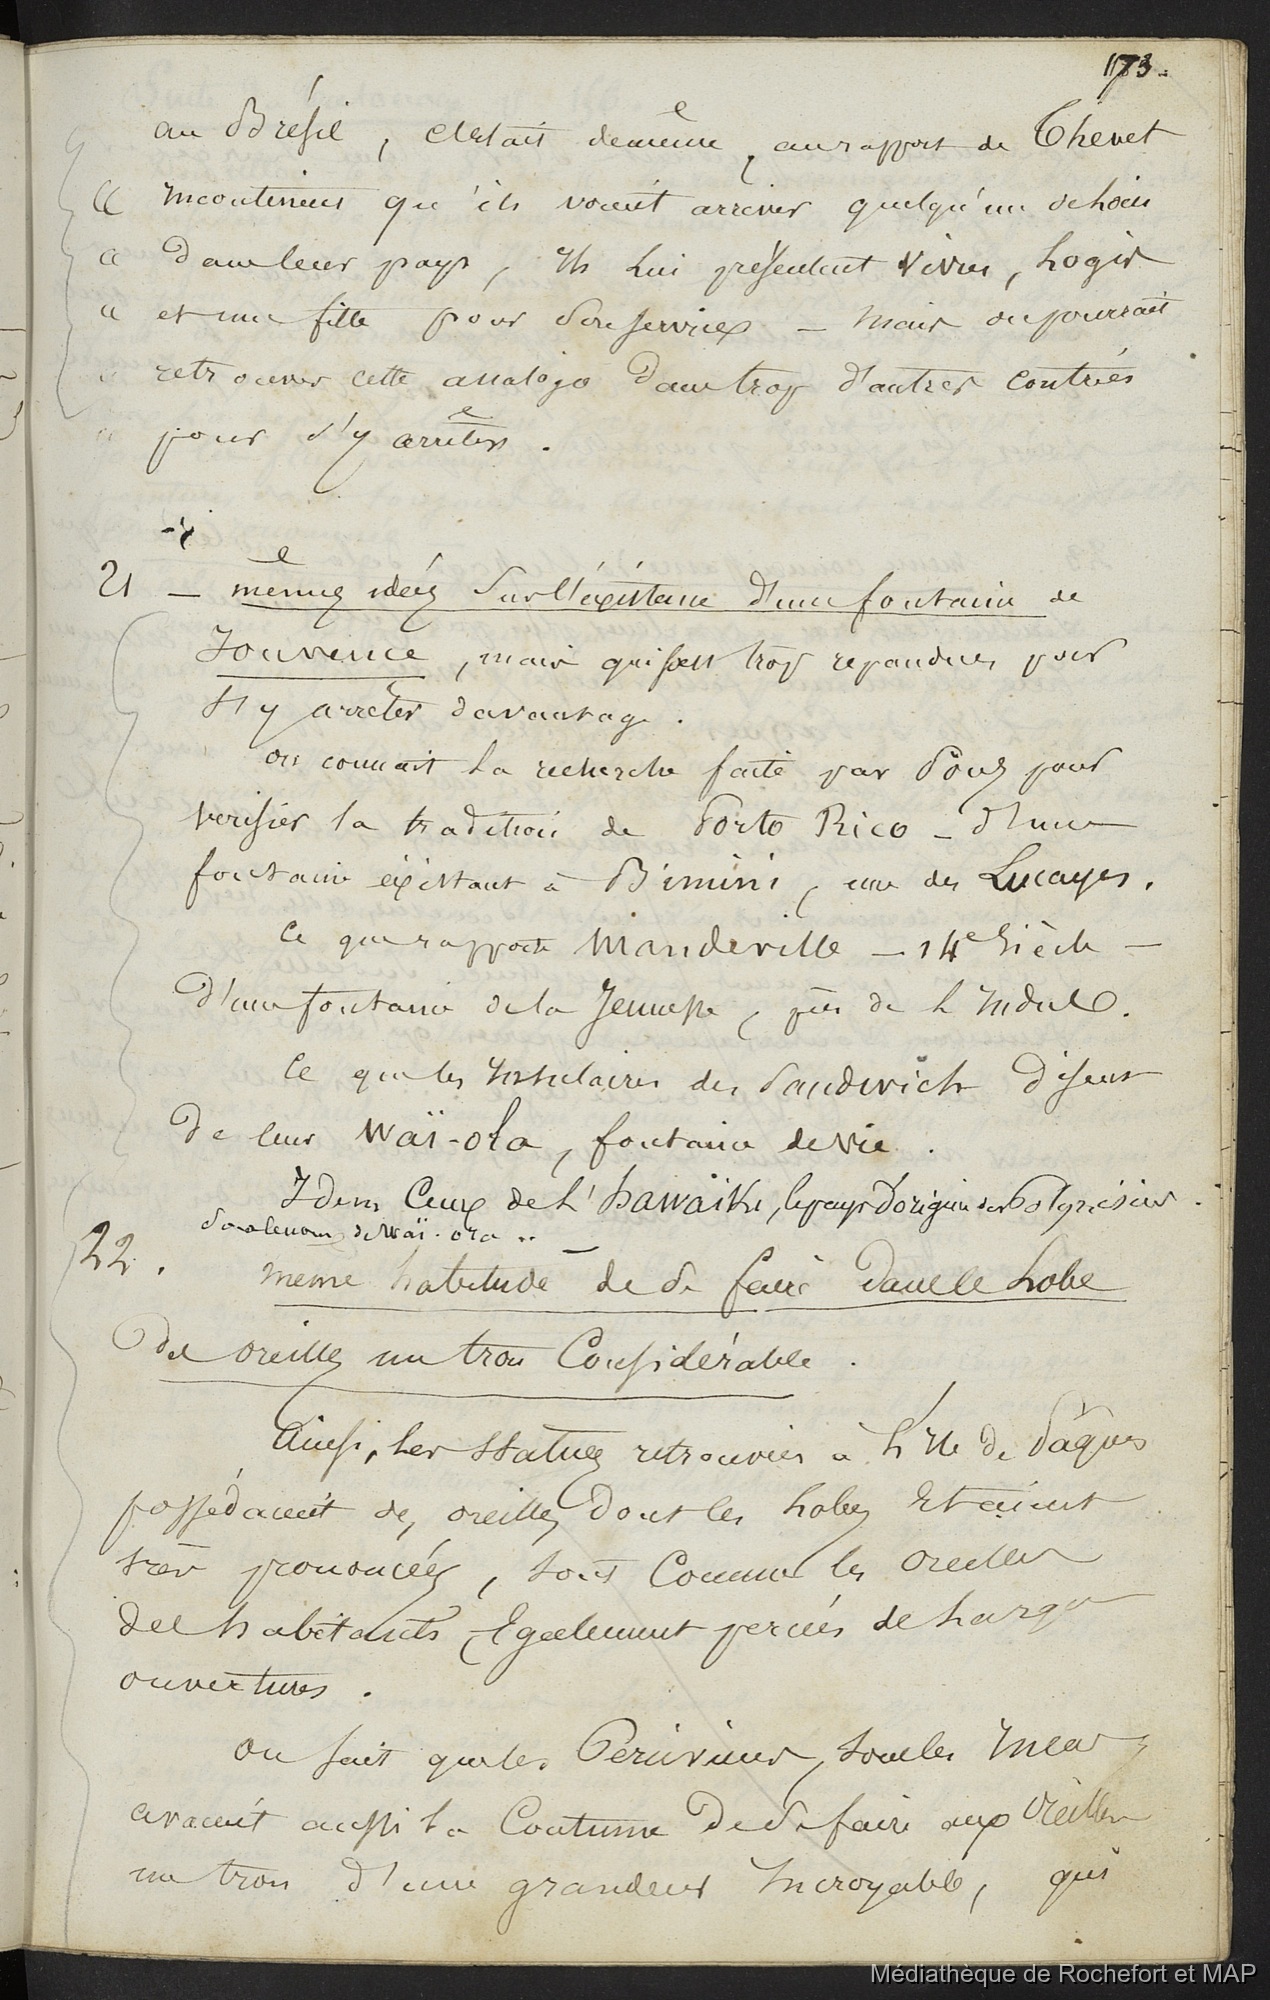 173.
au Brésil, c'était de même, au rapport de Thevet
« incontinent qu'ils voient arriver quelqu'un de loin
« dans leur pays, ils lui présentent vivres, logis
« et une fille pour son service » – mais on pourrait
« retrouver cette analogie dans trop d'autres contrées
« pour s'y arrêter.
21 – mêmes idées sur l'existence d'une fontaine de
Jouvence, mais qui sont trop répandues pour
s'y arrêter davantage.
on connait la recherche faite par Ponz pour
verifier la tradition de Porto Rico – d'une
fontaine existant à Bimini, une des Lucayes.
Ce que rapporte Mandeville – 14e Siècle –
d'une fontaine de la Jeunesse, près de l'Indus.
Ce que les Insulaires des Sandwich disent
de leur Waï-ola, fontaine de vie.
Idem Ceux de l'hawaïki, le pays d'origine des Polynésiens.
sous le nom de Waï-ora ..
22. même habitude de se faire dans le lobe
des oreilles un trou Considérable.
Ainsi, les statues retrouvées à l'Ile de Pâques
possédaient des oreilles dont les lobes étaient
très prononcés, tout comme les oreilles
des habitants, Egalement percées de larges
ouvertures.
on sait que les Péruviens, sous les Incas,
avaient aussi la Coutume de se faire aux oreilles
un trou d'une grandeur Incroyable, qui
Médiathèque de Rochefort et MAP